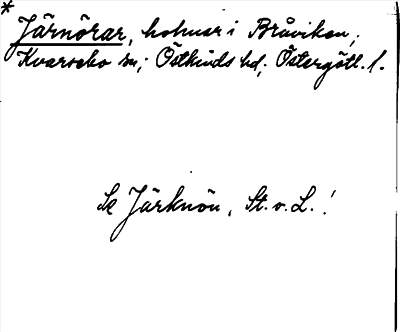 * Järnörar, holmar i Bråviken,
Kvarsebo sn; Östkinds hd; Östergötl. l.
Se Järknön, St. o. L.!